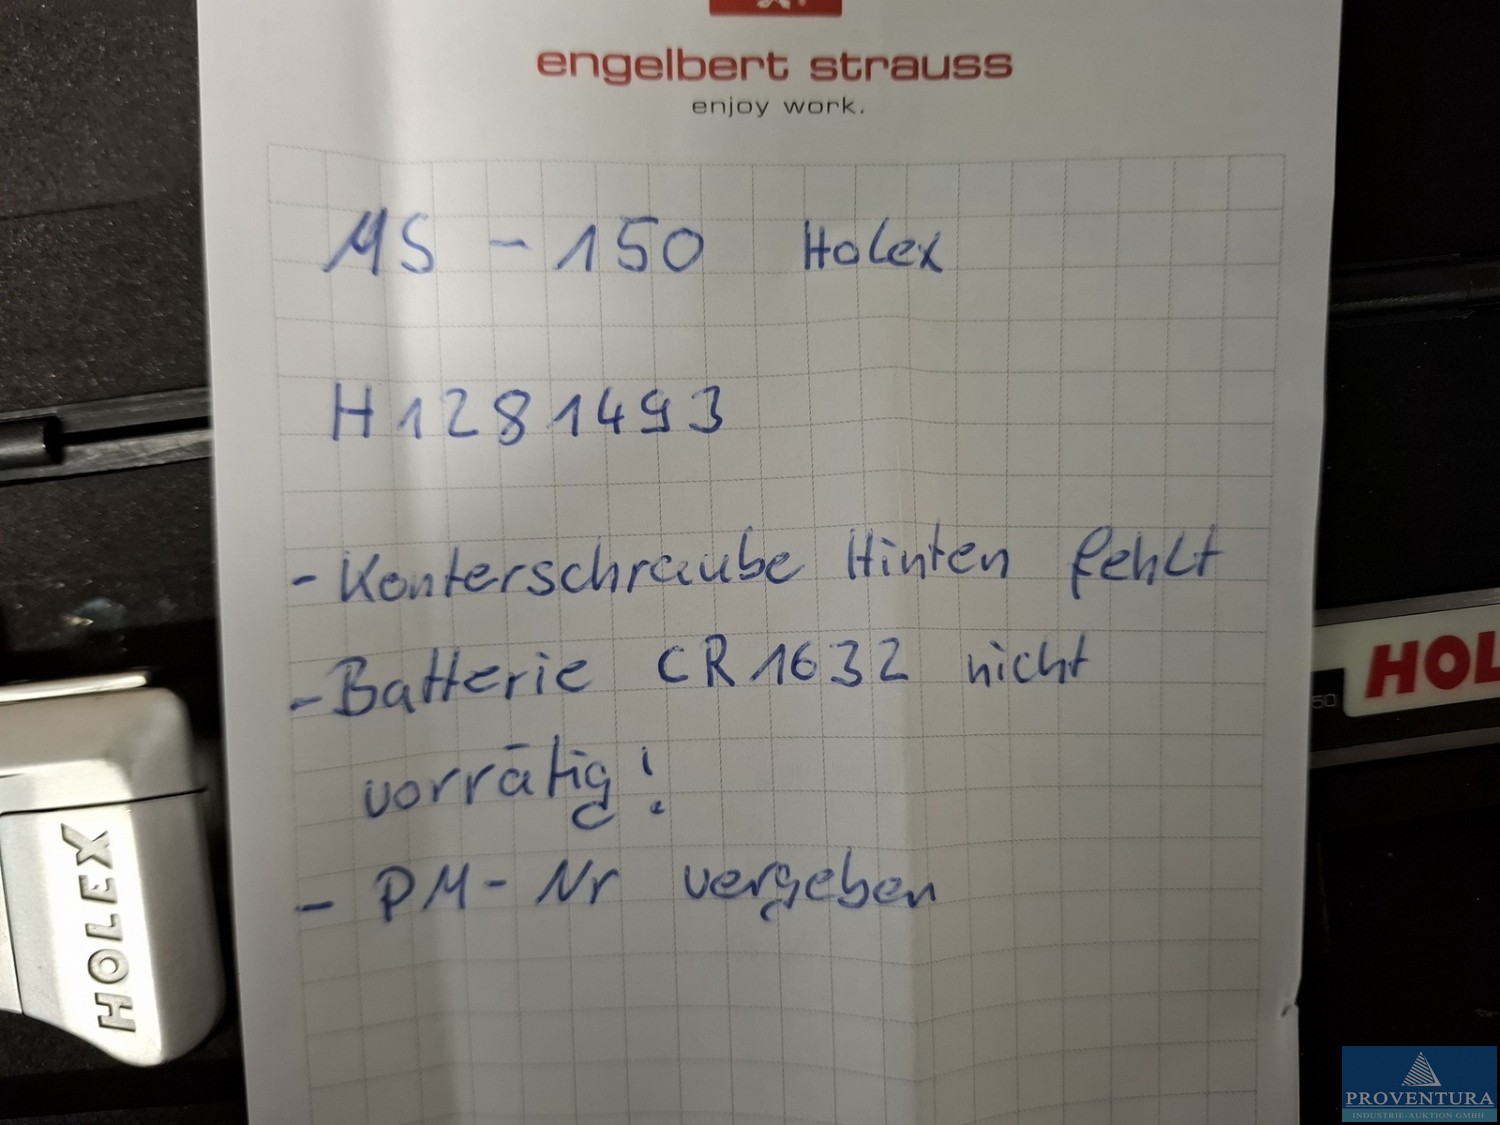 engelbert strauss
enjoy work.
MS - 150 Holex
H1281493
- Konterschraube Hinten fehlt
- Batterie CR1632 nicht
vorrätig!
- PM - Nr vergeben
HOLEX
50
HOL
PROVENTURA
INDUSTRIE-AUKTION GMBH